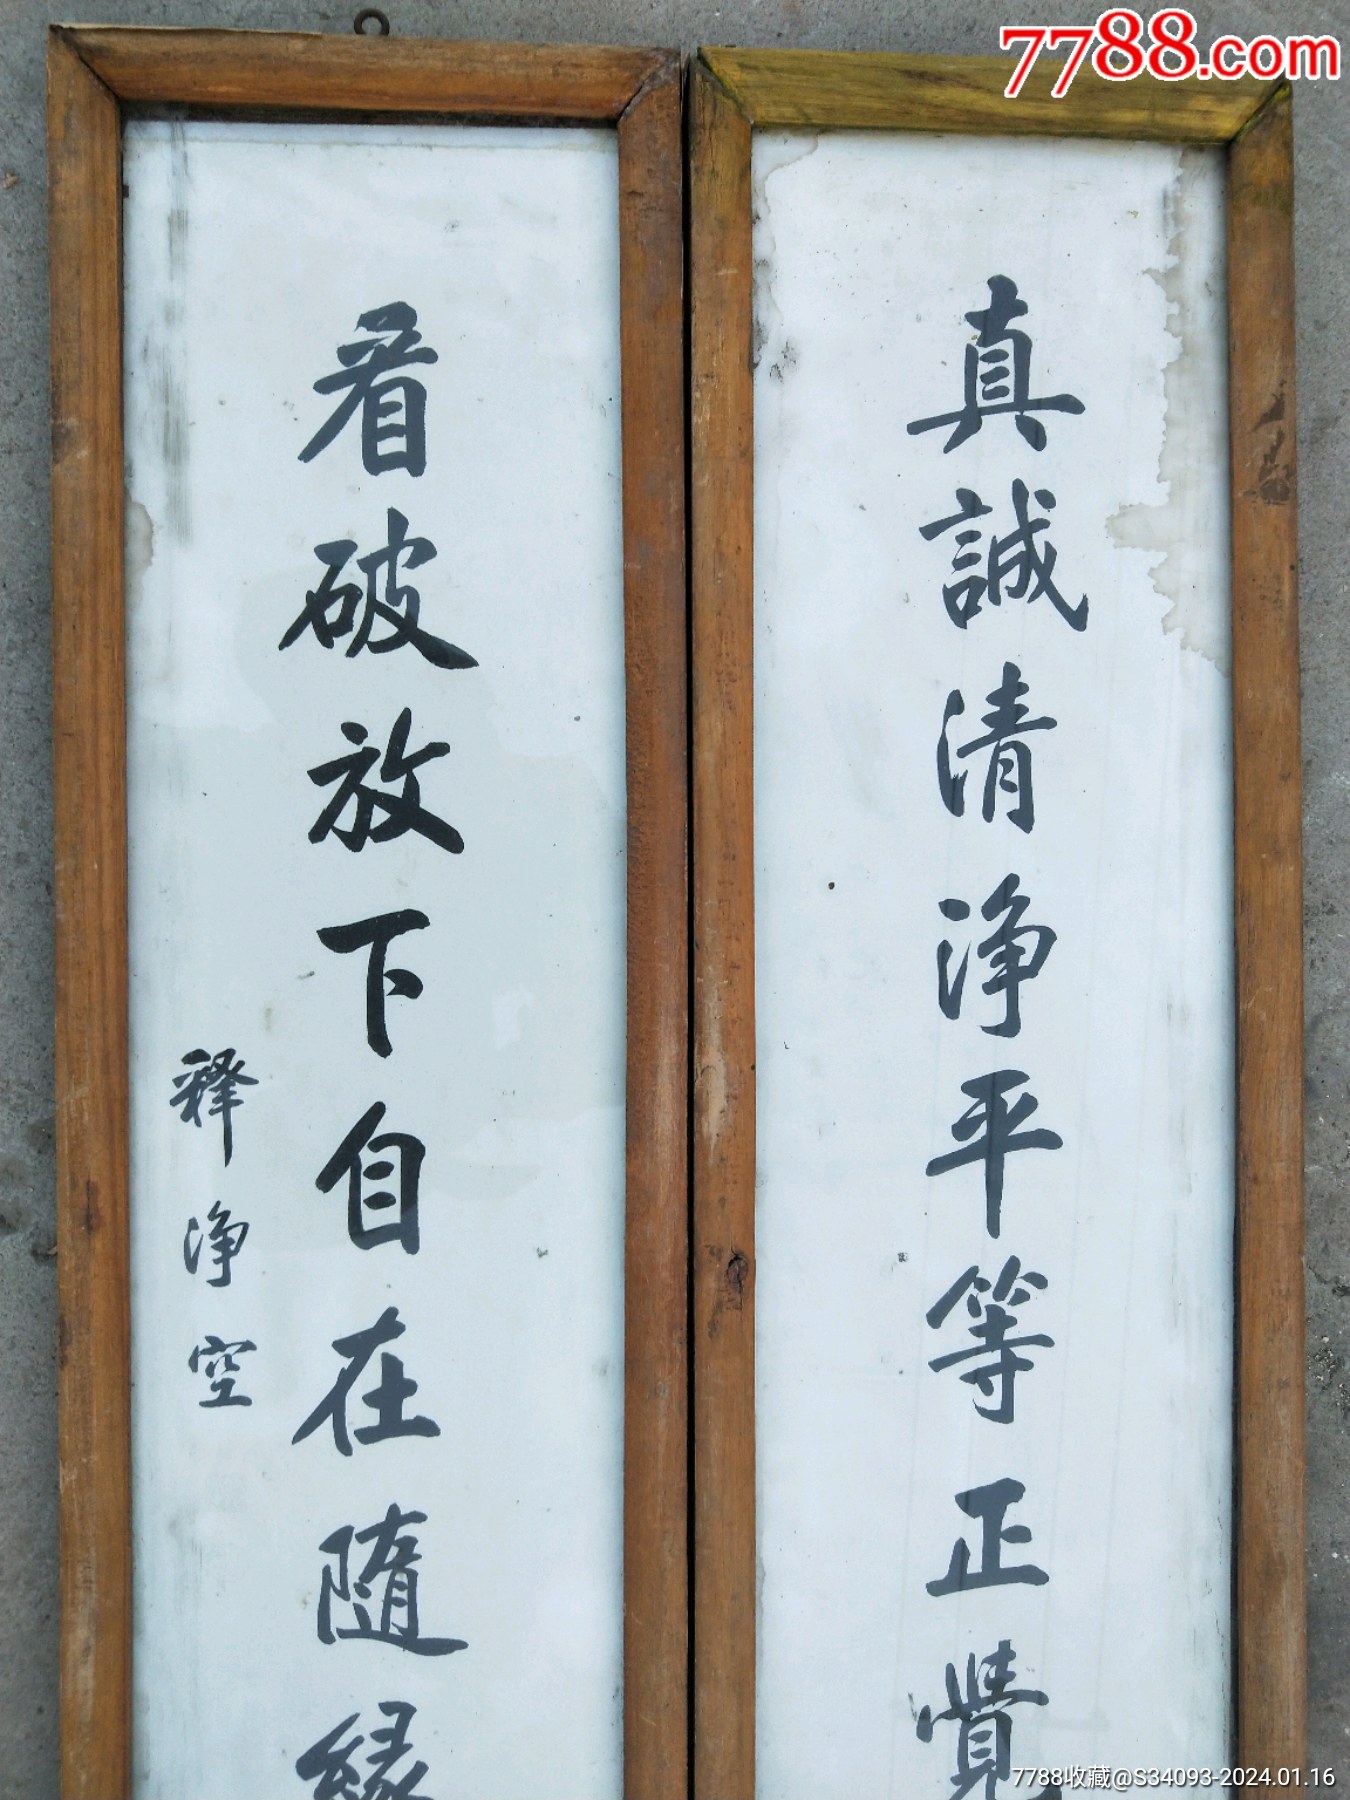 真誠清淨平等正覺
看破放下自在隨緣
释净空
7788.com
7788收藏@S34093-2024.01.16